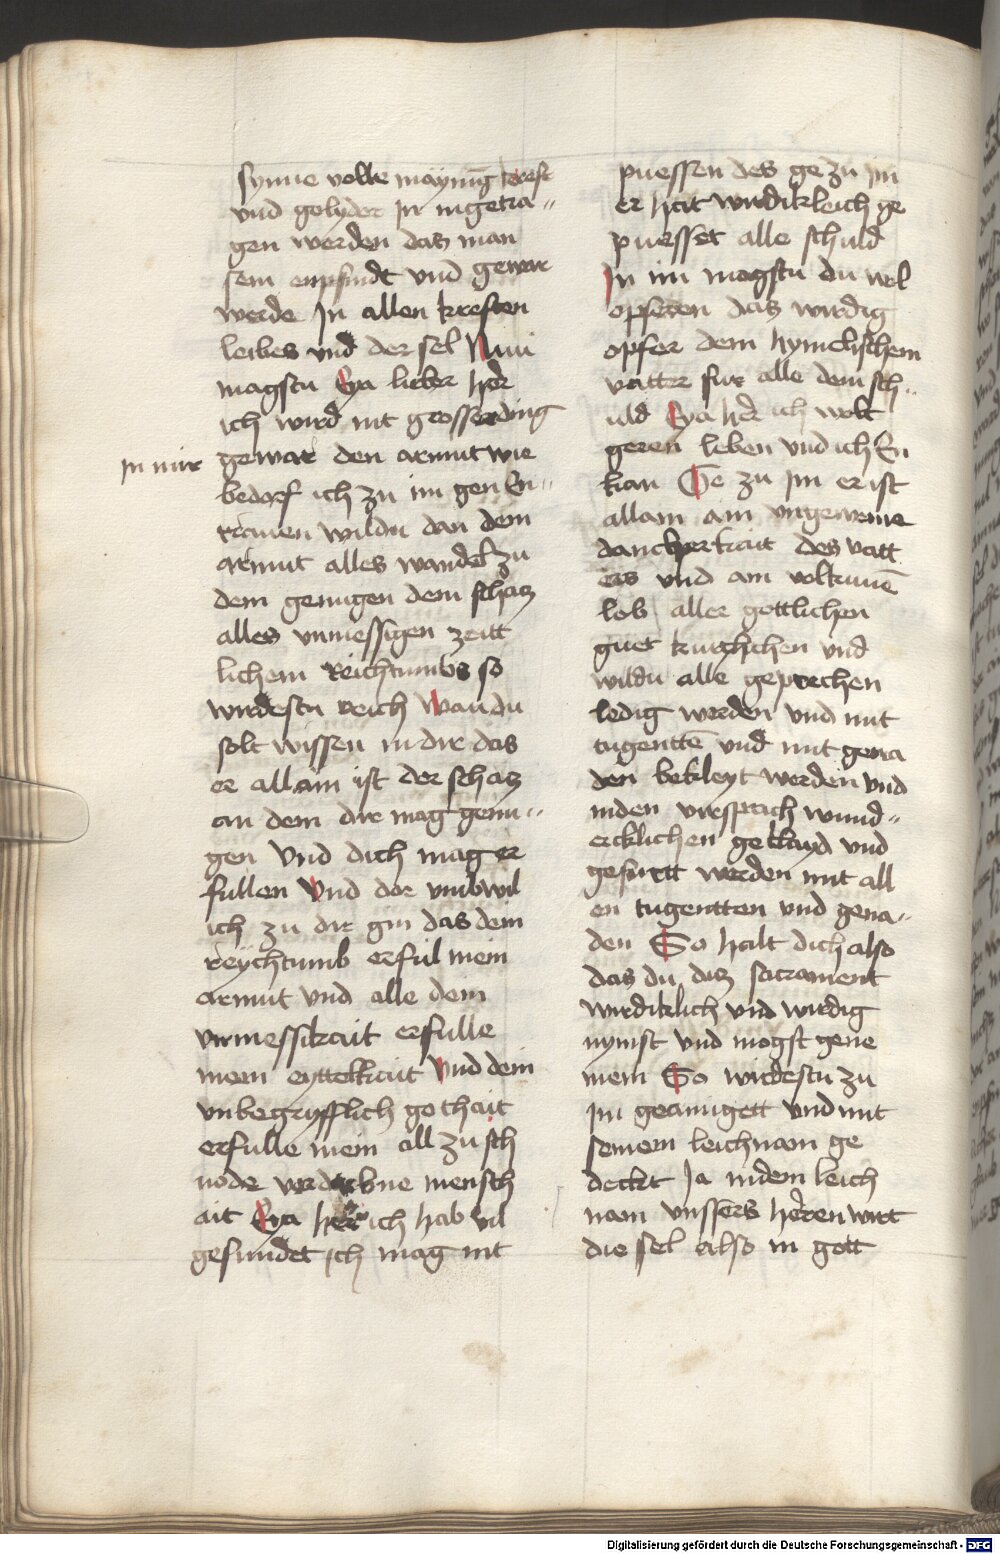 synne volle maynūg krefft
vnd gelyder In ingetra=
gen werden das man
sein enpfindt vnd gewar
werde In allen kreften
leibes vnd der sel Nun
magstu Eya lieber her
ich wird nit grosser ding
In mir gewar den armut wie
bedorf ich zu im gen En=
trawen wildu dan dem
armut alles wandel zu
dem genugen dem schatz
alles vnmessigen zeitt
lichem Reichtumbs so
wirdestu reich Wan du
solt wissen in dir das
er allain ist der schatz
an dem dir mag genu=
gen Vnd dich mag er
fullen Vnd dar vmb wil
ich zu dir gin das dein
reychtumb erful mein
armut vnd alle dein
vnmessikait erfulle
mein eyttelkait Vnd dein
vnbegryfflich gothait
erfulle mein all zu sch
node verdorbne mensch
ait Eya herr ich hab vil
gesundet ich mag nit
puessen des ge zu im
er hat wirdikleich ge
puesset alle schuld
In im magstu du wol
opferen das wirdig
opfer dem hymelischem
vatter fur alle dein sch=
uld Eya her ich wolt
geren loben vnd ich En
kan Ge zu im er ist
allain ain vngeweine
danchperkait des vatt
ers vnd ain volkumē
lob aller gottlichen
guet kurczlichen vnd
wildu alle geprechen
ledig werden vnd mit
tugenttē vnd mit gena
den bekleyt werden vnd
in den vrsprach wund=
ercklichen geklayd vnd
gefurtt werden mit all
en tugentten vnd gena=
den So halt dich also
das du das sacrament
wirdiklich vnd wirdig
nymst vnd mogst gene
mem So wirdestu zu
im geainigett vnd mit
seinem leichnam ge
deckt Ja in dem leich
nam vnssers heren wirt
die sel also in gott
Digitalisierung gefördert durch die Deutsche Forschungsgemeinschaft - DFG